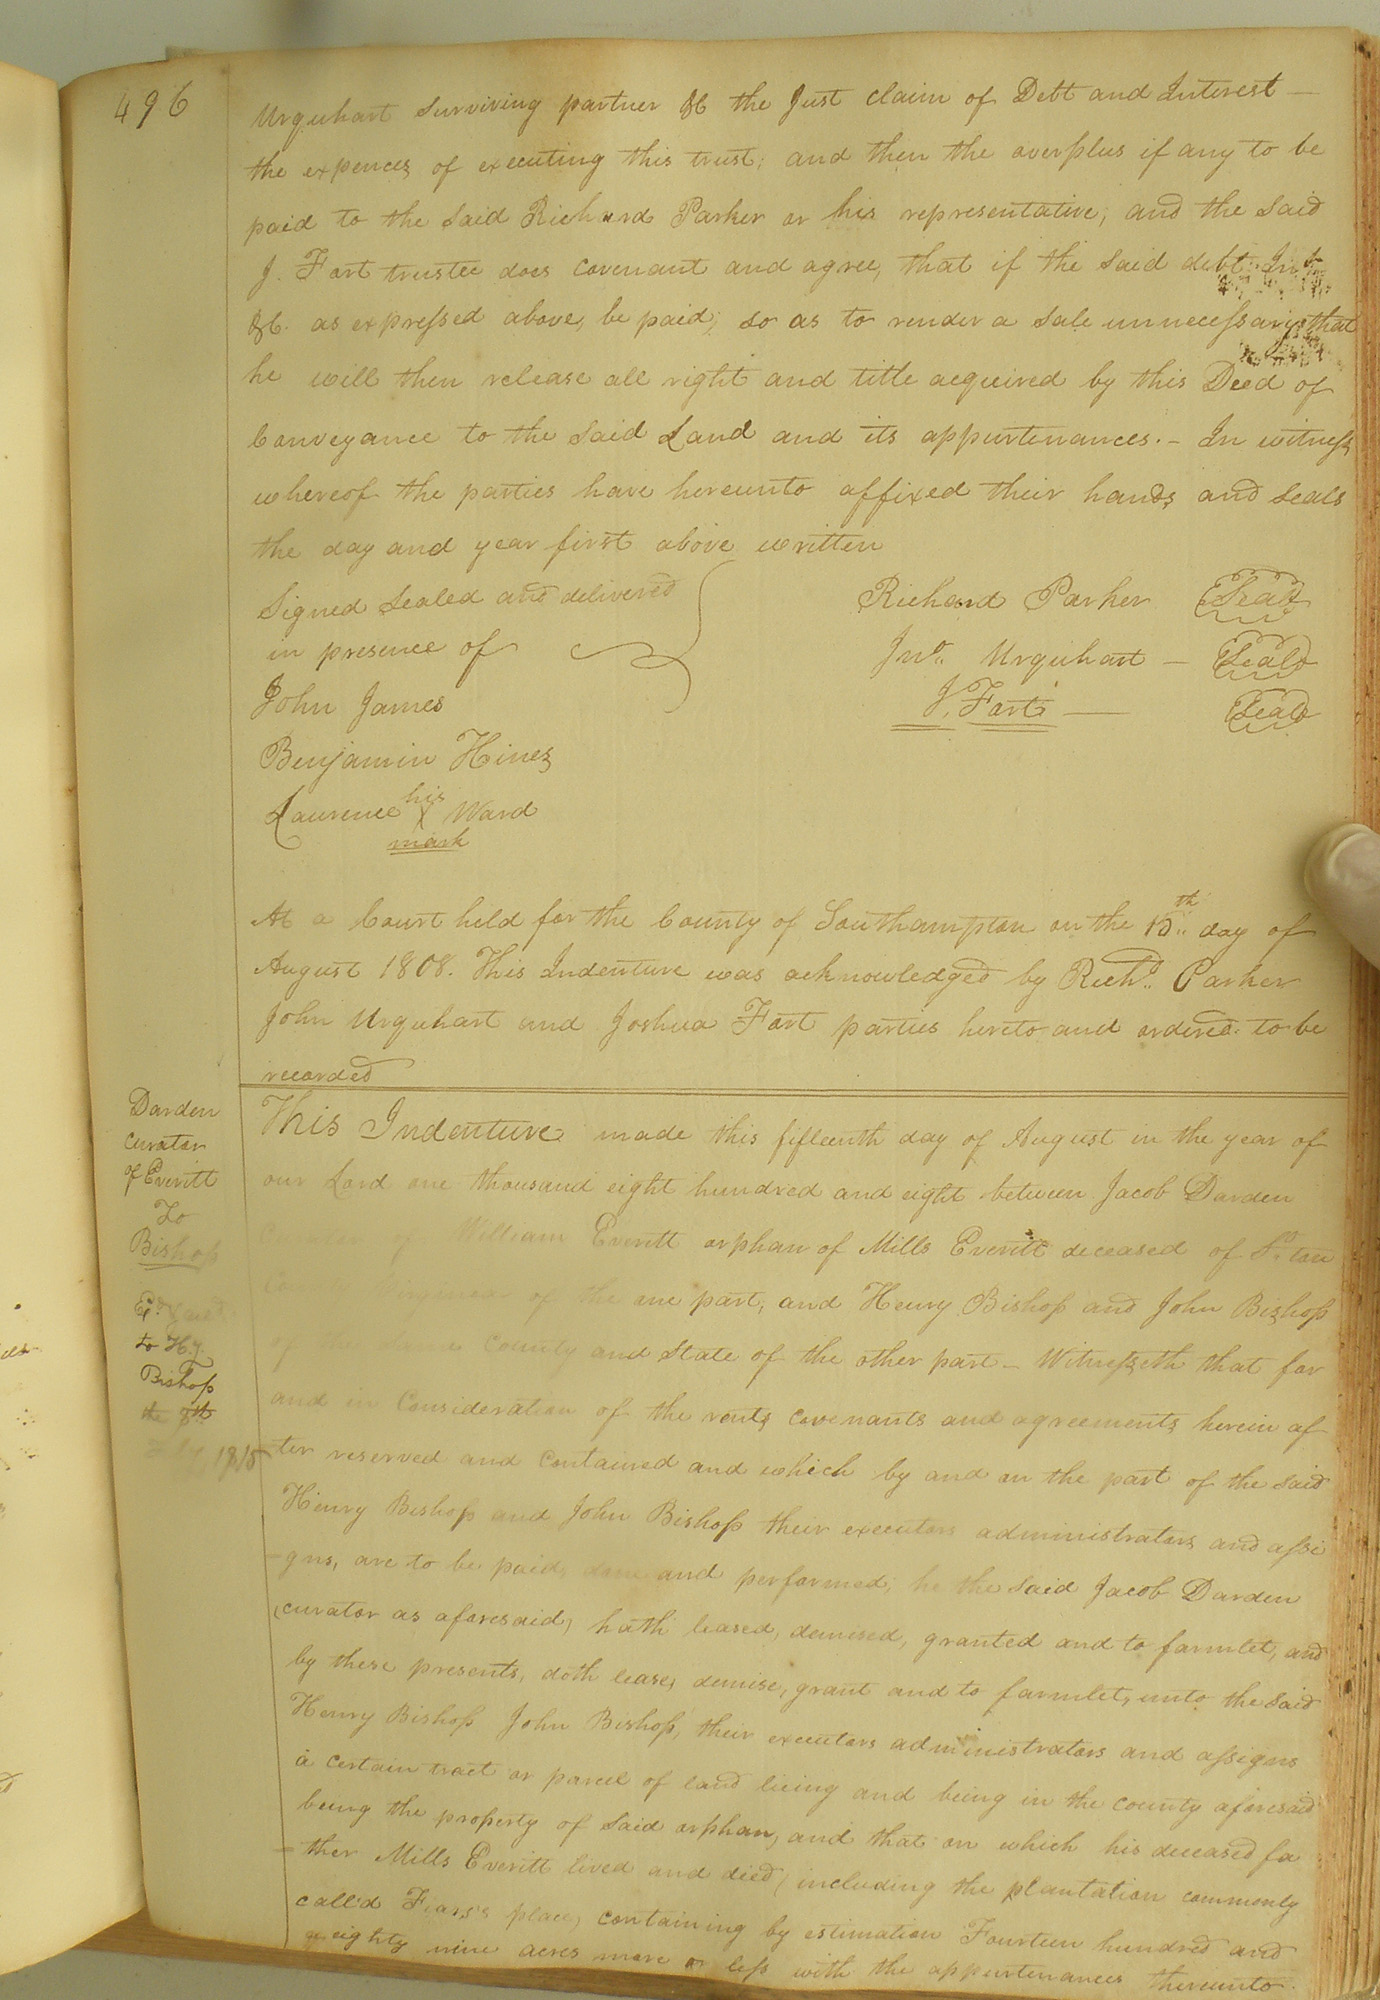 496
Urquhart surviving partner &c the Just claim of Debt and Interest —
the expences of executing this trust, and then the overplus if any to be
paid to the said Richard Parker or his representative, and the said
J. Fort trustee does covenant and agree, that if the said debt Int
&c. as expressed above, be paid, so as to render a sale unnecessary that
he will then release all right and title acquired by this Deed of
Conveyance to the said Land and its appurtenances. – In witness
whereof the parties have hereunto affixed their hands and seals
the day and year first above written
Signed sealed and delivered
in presence of
John James
Benjamin Hines
Laurence his X Ward
mark
Richard Parker Seal
Jno. Urquhart — Seal
J. Fort — Seal
At a Court held for the County of Southampton on the 15th day of
August 1808. This Indenture was acknowledged by Richd. Parker
John Urquhart and Joshua Fort parties hereto and ordered to be
recorded
Darden
curator
of Everitt
To
Bishop
to Hy.
Bishop
the 8th
1815
This Indenture made this fifteenth day of August in the year of
our Lord one thousand eight hundred and eight between Jacob Darden
Curator of William Everitt orphan of Mills Everitt deceased of So. ton
County Virginia of the one part, and Henry Bishop and John Bishop
of the same County and State of the other part – Witnesseth that for
and in Consideration of the rents covenants and agreements herein af
ter reserved and contained and which by and on the part of the said
Henry Bishop and John Bishop their executors administrators and assi
-gns, are to be paid, done and performed, he the said Jacob Darden
curator as aforesaid, hath leased, demised, granted and to farmlet, and
by these presents, doth lease, demise, grant and to farmlet, unto the said
Henry Bishop John Bishop, their executors administrators and assigns
a certain tract or parcel of land lieing and being in the county aforesaid
being the property of said orphan, and that on which his deceased fa
-ther Mills Everitt lived and died, including the plantation commonly
call'd place, containing by estimation Fourteen hundred and
eighty nine acres more or less with the appurtenances thereunto